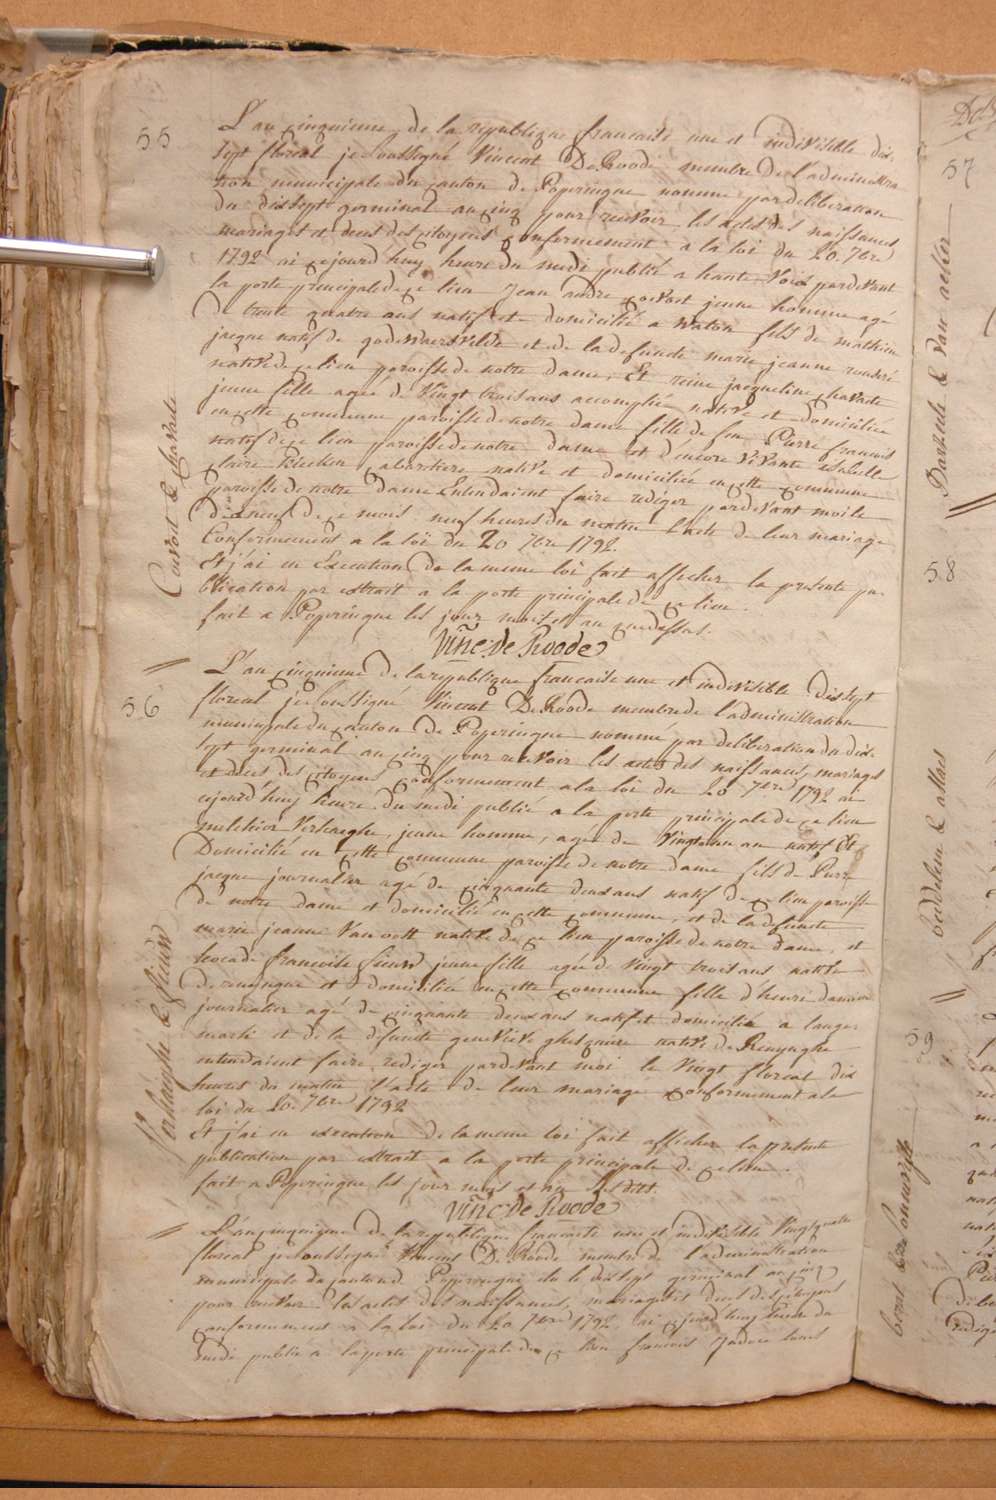 55
L'an cinquieme de la republique francaise une et indivisible dix
sept floreal je soussigné Vincent De Roode membre de l'administra
tion municipale du canton de Poperingue nommé par deliberation
du dixsept germinal an cinq pour recevoir les actes des naissances
mariages et deces des citoyens conformement a la loi du 20. 7bre
1792 ai cejourd'huy heure du midi publié a haute voix pardevant
la porte principale de ce lieu Jean andre convort jeune homme agé
de trente quatre ans natif et domicilié a Waton fils de mathieu
jacque natif de godewaersvelde et de la defunte marie jeanne
native de ce lieu paroisse de notre dame, Et reine jacqueline chavaete
jeune fille agée de Vingt trois ans accomplie native et domiciliée
en cette commune paroisse de notre dame fille de feu Pierre francois
natif de ce lieu paroisse de notre dame et d'encore vivante isabelle
claire cabaretiere native et domiciliée en cette commune
paroisse de notre dame Entendaient faire rediger pardevant moi le
dixneuf de ce mois neuf heures du matin l'acte de leur mariage
Conformement a la loi du 20 7bre 1792.
Et j'ai en Execution de la meme loi fait afficher la presente pu-
blication par extrait a la porte principale de ce lieu.
fait a Poperingue les jour mois et an quedessus.
Vinc: de Roode
Convort & Chavaete
56
L'an cinquieme de la republique francaise une et indivisible dixsept
floreal je soussigné Vincent De Roode membre de l'administration
municipale du canton de Poperingue nommé par deliberation du dix
sept germinal an cinq pour recevoir les actes des naissances, mariages
et deces des citoyens conformement a la loi du 20 7bre 1792 ai
cejourd'huy heure du midi publié a la porte principale de ce lieu
melchior Verhaeghe, jeune homme, agé de Vingt un an natif et
Domicilié en cette commune paroisse de notre dame fils de Pierre
jacque journalier agé de cinquante deux ans natif de ce lieu paroisse
de notre dame et domicilié en cette commune, et de la defunte
marie jeanne Van native de ce lieu paroisse de notre dame, et
francoise jeune fille agée de Vingt trois ans native
de et domiciliée en cette commune fille d'henri
journalier agé de cinquante deux ans natif et domicilié a lange
marck et de la defunte genevieve ghesquiere native de Renynghe
entendaient faire rediger pardevant moi le Vingt floreal dix
heures du matin l'acte de leur mariage conformement a la
loi du 20. 7bre 1792
Et j'ai en execution de la meme loi fait afficher la presente
publication par extrait a la porte principale de ce lieu.
fait a Poperingue les jour mois et an susdits.
Vinc: de Roode
Verhaeghe &
L'an cinquieme de la republique francaise une et indivisible Vingt quatre
floreal je soussigné Vincent De Roode membre de l'administration
municipale du canton d. Poperingue élu le dixsept germinal an cinq
pour recevoir les actes des naissances, mariages et deces des citoyens
conformement a la loi du 20 7bre 1792 ai cejourd'huy heure du
midi publié a la porte principale de ce lieu francois
57
58
59